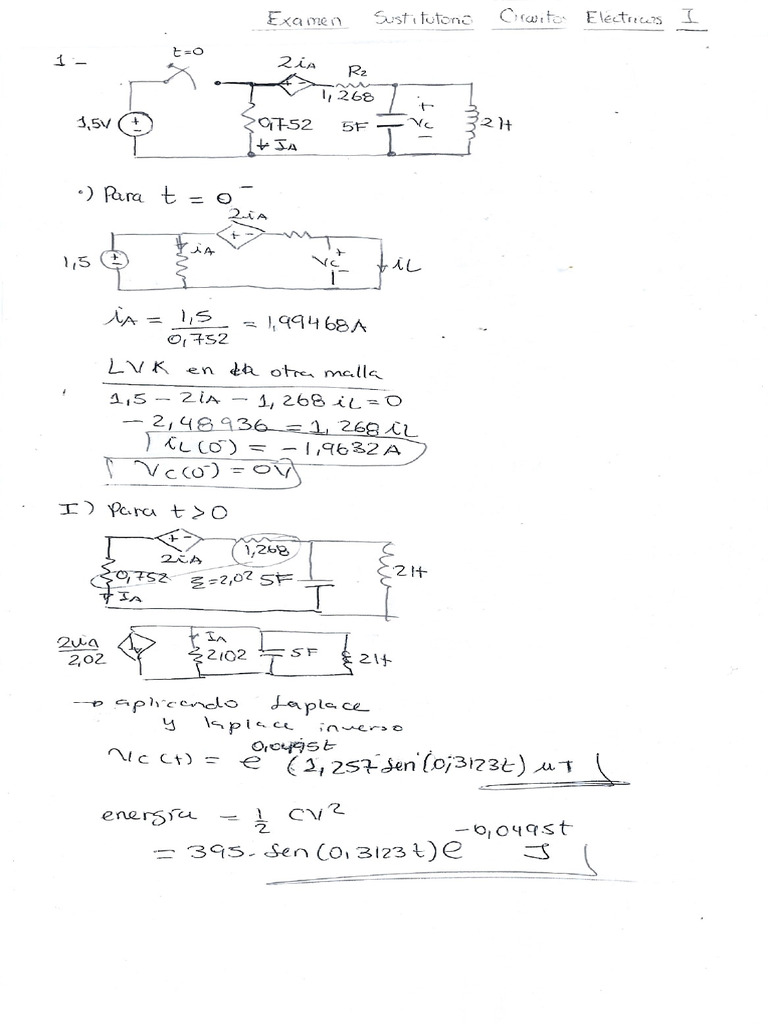 Examen Sustitutorio Circuitos Eléctricos I
1.-
t=0
2iA
R2
1,268
1,5V
0,752
IA
5F
+
Vc
-
2H
•) Para t = 0⁻
2iA
1,5
iA
+
Vc
-
iL
iA = 1,5/0,752 = 1,99468A
LVK en la otra malla
1,5 - 2iA - 1,268 iL = 0
- 2,48936 = 1,268 iL
iL(0⁻) = -1,9632A
Vc(0⁻) = 0V
I) Para t>0
2iA
1,268
0,752
Σ=2,02
5F
2H
IA
2iA/2,02
IA
2,02
5F
2H
→ aplicando Laplace
y laplace inverso
Vc(t) = e^0,0495t (1,257 sen(0,3123t) u T
energía = 1/2 CV²
= 395. sen(0,3123t) e^-0,0495t J